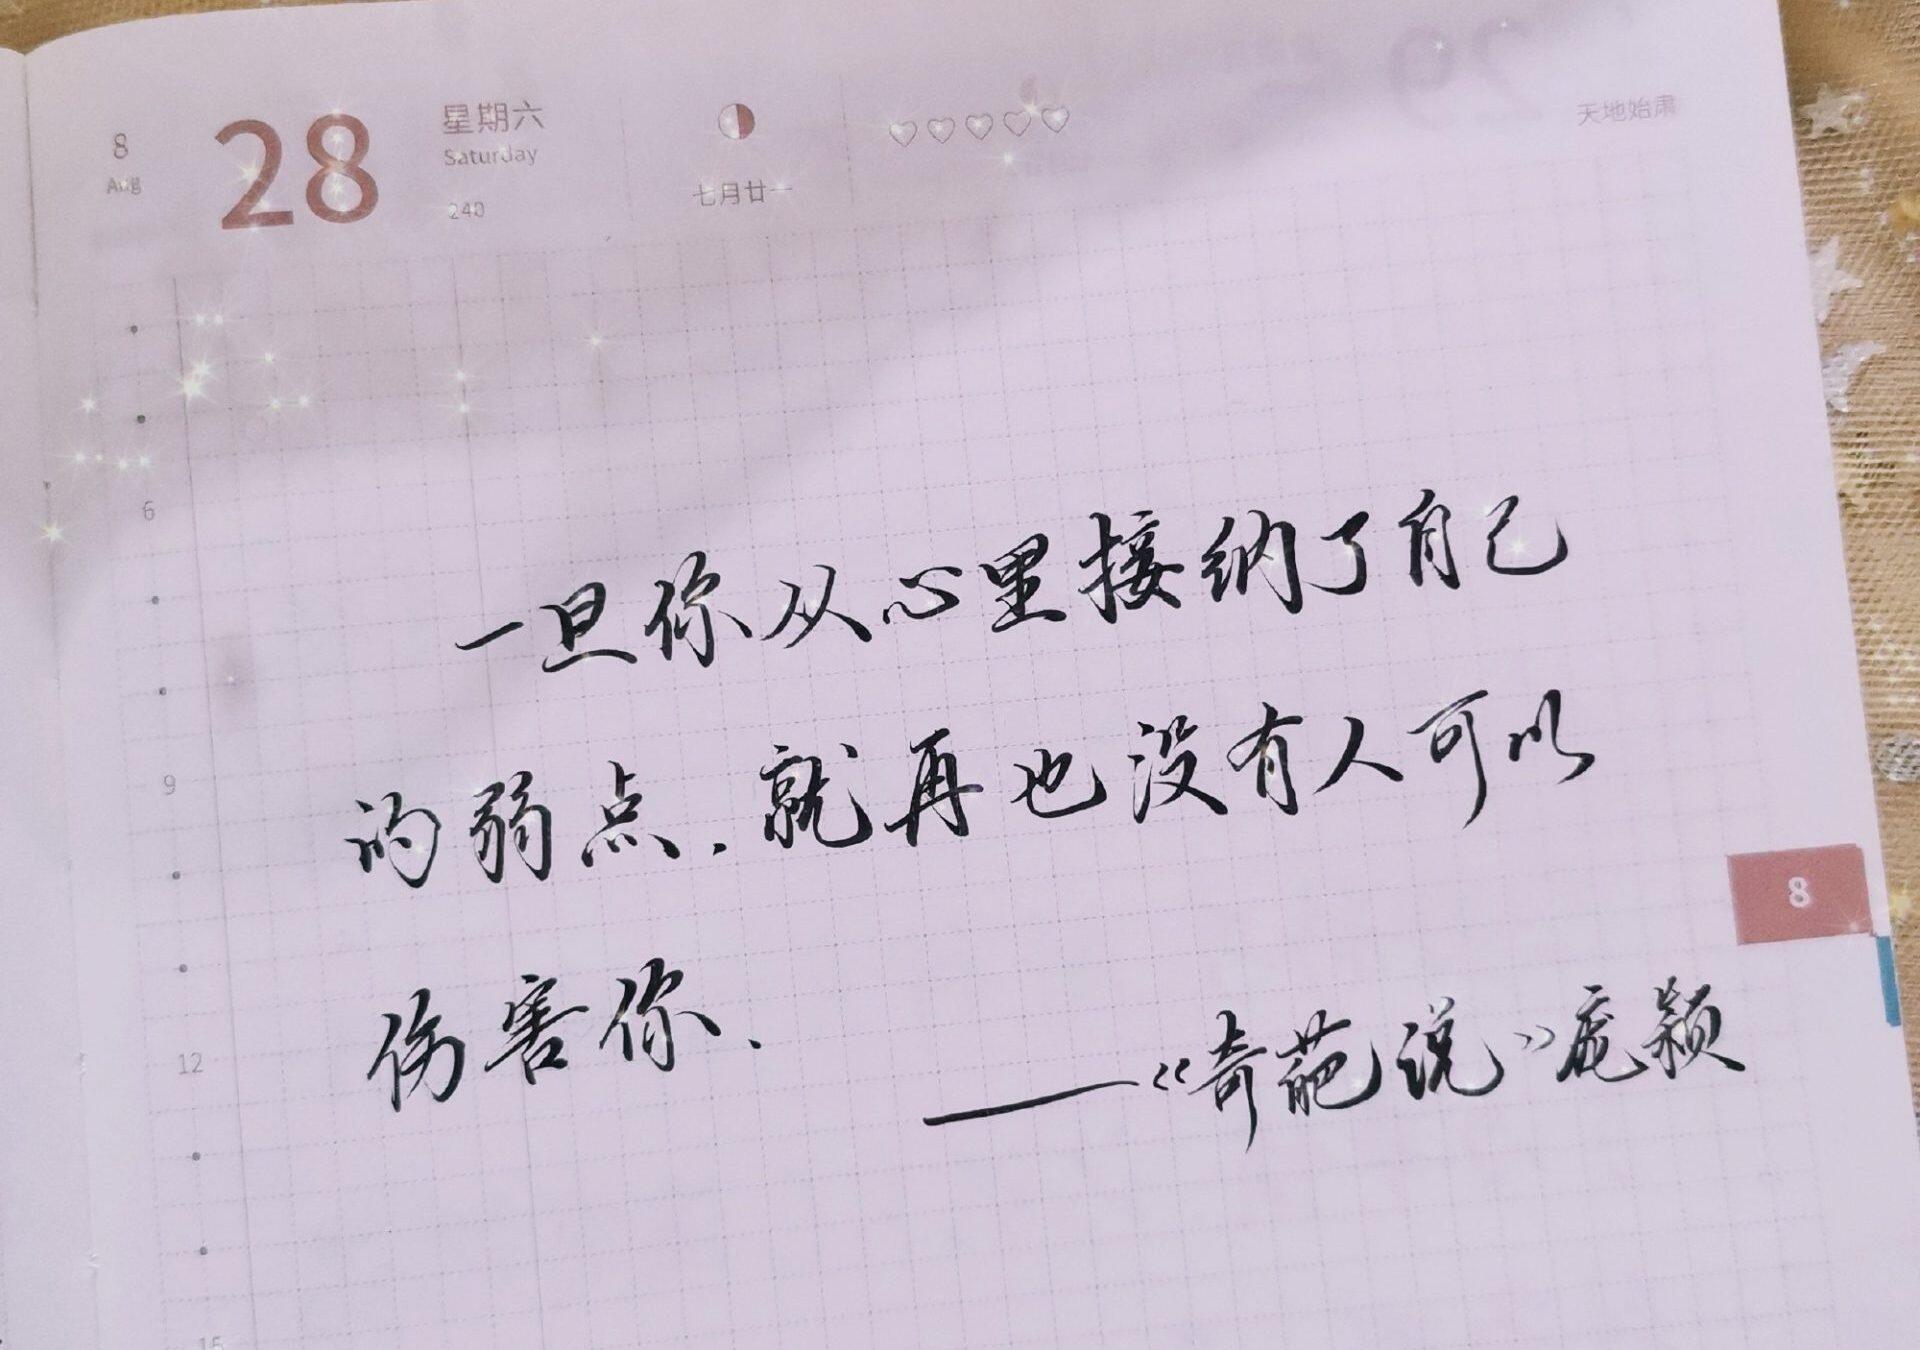 8
Aug
28
星期六
Saturday
240
七月廿一
天地始肃
6
一旦你从心里接纳了自己
9
的弱点.就再也没有人可以
8
12
伤害你.
——《奇葩说》庞颖
15